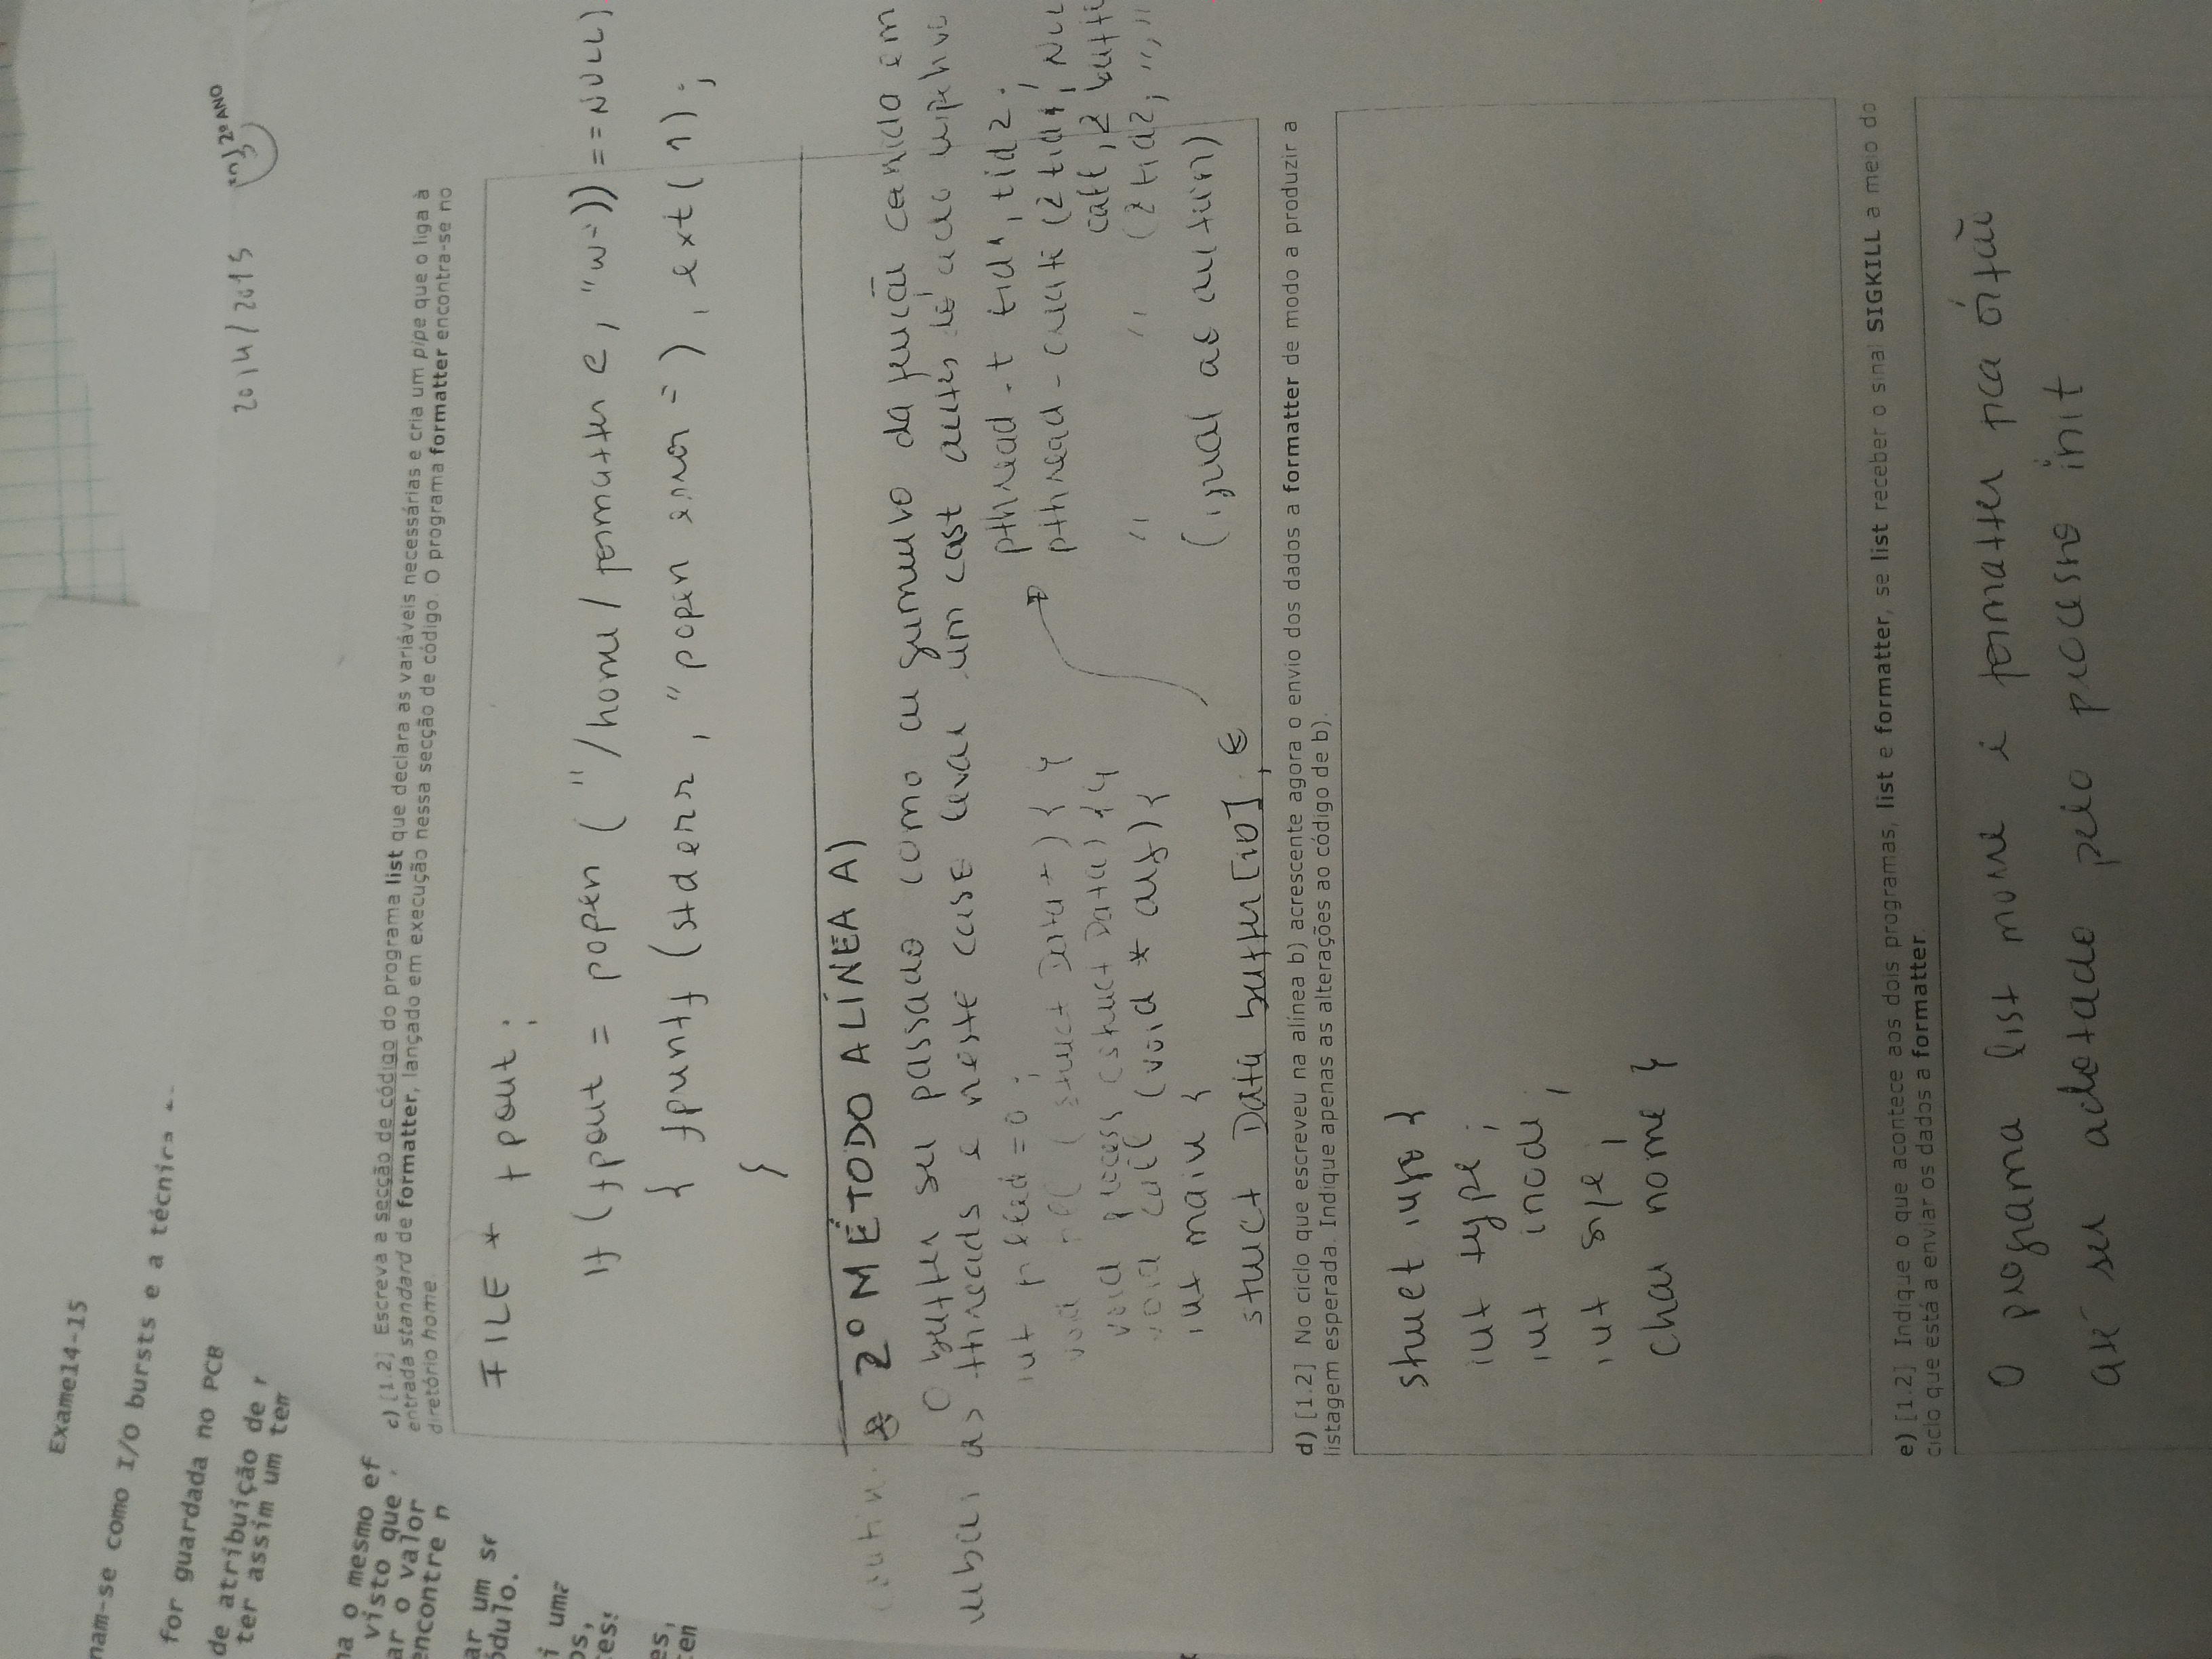 Exame14-15
nam-se como I/O bursts e a técnica
for guardada no PCB
de atribuição de r
ter assim um tem
2014/2015
2º ANO
na o mesmo ef
visto que
ar o valor
encontre n
ar um se
ódulo.
i uma
os,
es,
c) [1.2] Escreva a secção de código do programa list que declara as variáveis necessárias e cria um pipe que o liga à
entrada standard de formatter, lançado em execução nessa secção de código. O programa formatter encontra-se no
diretório home.
FILE * fpout;
if (fpout = popen ("/home/formatter.c", "w")) == NULL)
{ fprintf (stderr, "popen error"), exit(1);
}
2º MÉTODO ALÍNEA A)
O buffer ser passado como argumento da função corrida em
ambas as threads e neste caso levar um cast antes
int = 0;
void (struct Data *) { }
void process (struct Data) { }
void call (void * arg) {
int main {
struct Data buffer [10];
pthread_t tid1, tid2;
pthread_create (& tid1, NUL
call, & buffe
" " (& tid2, ", "
(igual ao anterior)
d) [1.2] No ciclo que escreveu na alínea b) acrescente agora o envio dos dados a formatter de modo a produzir a
listagem esperada. Indique apenas as alterações ao código de b).
struct info {
int type;
int inode;
int size;
char nome }
e) [1.2] Indique o que acontece aos dois programas, list e formatter, se list receber o sinal SIGKILL a meio do
ciclo que está a enviar os dados a formatter.
O programa list morre e formatter fica órfão
até ser adotado pelo processo init